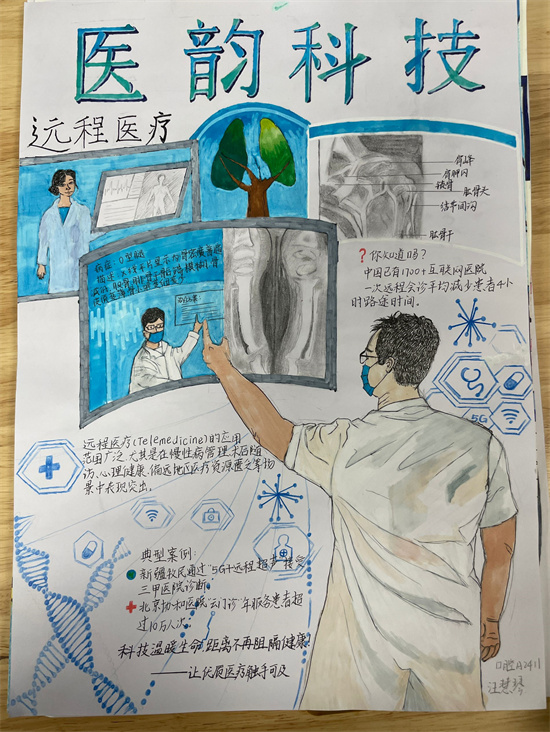 医韵科技
远程医疗
病症：O型腿
肩峰
肱骨头
结节间沟
肱骨干
❓你知道吗？
中国已有1700+互联网医院
一次远程会诊平均减少患者4小
时路途时间．
5G
远程医疗(Telemedicine)的应用
范围广泛，尤其是在慢性病管理、术后随
访、心理健康、偏远地区医疗资源匮乏等场
景中表现突出．
典型案例：
新疆牧民通过"5G+远程超声"接受
三甲医院诊断；
北京协和医院"云门诊"年服务患者超
过10万人次；
科技温暖生命，距离不再阻隔健康
——让优质医疗触手可及
口腔A2411